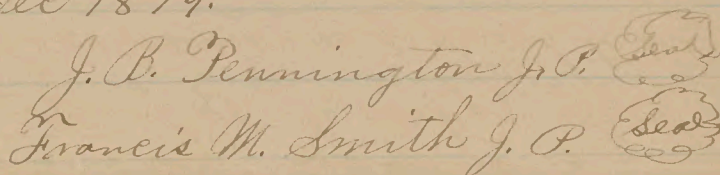 Dec 1879.
J. B. Pennington J. P. Seal
Francis M. Smith J. P. Seal